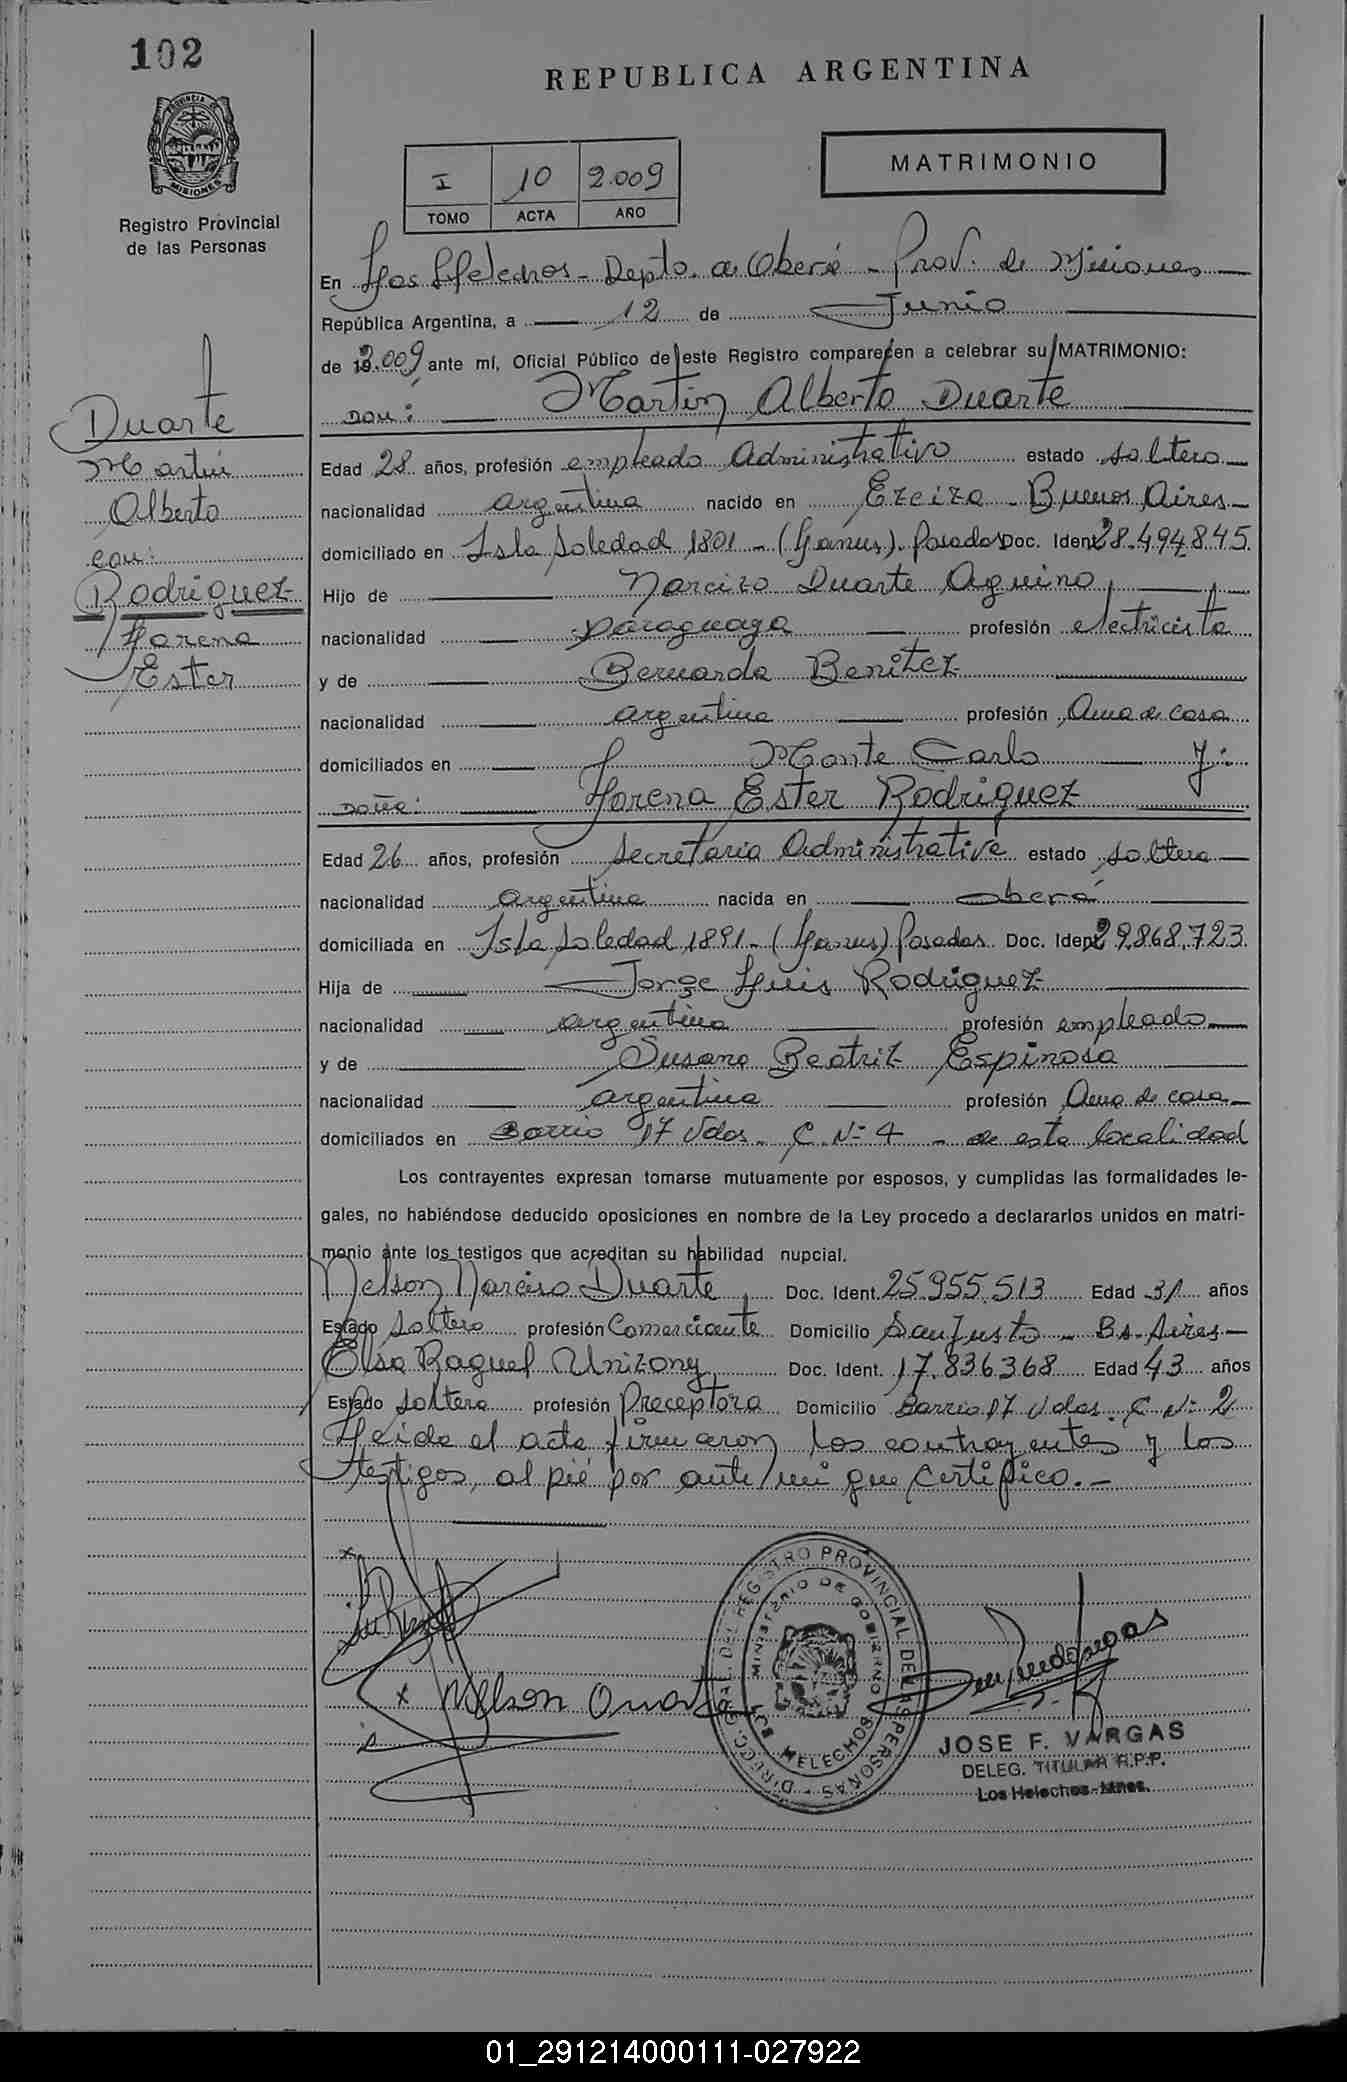 102
REPUBLICA ARGENTINA
PROVINCIA DE
MISIONES
Registro Provincial
de las Personas
MATRIMONIO
I 10 2.009
TOMO ACTA AÑO
En Los Helechos - Depto. de Oberá - Prov. de Misiones
República Argentina, a 12 de Junio
de 2.009 ante mí, Oficial Público de este Registro comparecen a celebrar su MATRIMONIO:
Don: Martin Alberto Duarte
Edad 28 años, profesión empleado Administrativo estado soltero
nacionalidad argentina nacido en Ezeiza - Buenos Aires
domiciliado en Isla Soledad 1801 - (Yanus). Posadas Doc. Ident 28.494.845
Hijo de Narcizo Duarte Aquino
nacionalidad paraguaya profesión electricista
y de Bernarda Benitez
nacionalidad argentina profesión Ama de casa
domiciliados en Monte Carlo y:
Doña: Lorena Ester Rodriguez
Edad 26 años, profesión Secretaria Administrativa estado soltera
nacionalidad argentina nacida en Oberá
domiciliada en Isla Soledad 1891 - (Yanus) Posadas Doc. Ident 29.868.723
Hija de Jorge Luis Rodriguez
nacionalidad argentina profesión empleado
y de Susana Beatriz Espinosa
nacionalidad argentina profesión Ama de casa
domiciliados en Barrio 17 Vdas. C. Nº 4 - de esta localidad
Los contrayentes expresan tomarse mutuamente por esposos, y cumplidas las formalidades le-
gales, no habiéndose deducido oposiciones en nombre de la Ley procedo a declararlos unidos en matri-
monio ante los testigos que acreditan su habilidad nupcial.
Nelson Narciso Duarte Doc. Ident. 25.955.513 Edad 31 años
Estado soltero profesión Comerciante Domicilio San Justo - Bs. Aires
Elsa Raquel Unizony Doc. Ident. 17.836.368 Edad 43 años
Estado soltera profesión Preceptora Domicilio Barrio 17 Vdas. C Nº 2
Leida el acta firmaron los contrayentes y los
testigos, al pié por ante mi que certifico.-
Duarte
Martin
Alberto
con:
Rodriguez
Lorena
Ester
x
x Nelson Duarte
DIRECC. GRAL. DEL REGISTRO PROVINCIAL DE LAS PERSONAS
MINISTERIO DE GOBIERNO
LOS HELECHOS
JOSE F. VARGAS
DELEG. TITULAR R.P.P.
Los Helechos - Mnes.
01_291214000111-027922